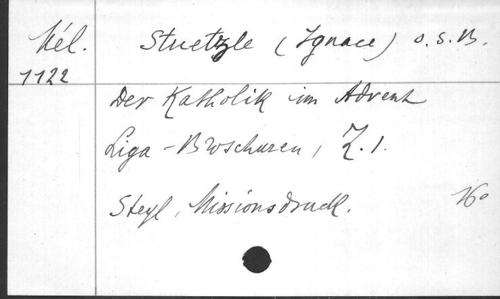 Mél. Stuetzle (Ignace) O.S.B.
1122
Der Katholik im Advent
Liga-Broschuren, Z.1.
Steyl, Missionsdruck. 16°